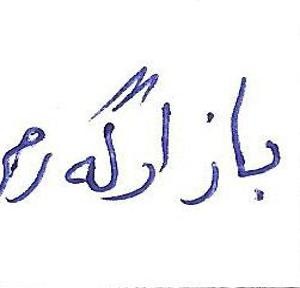 بازارگەرم